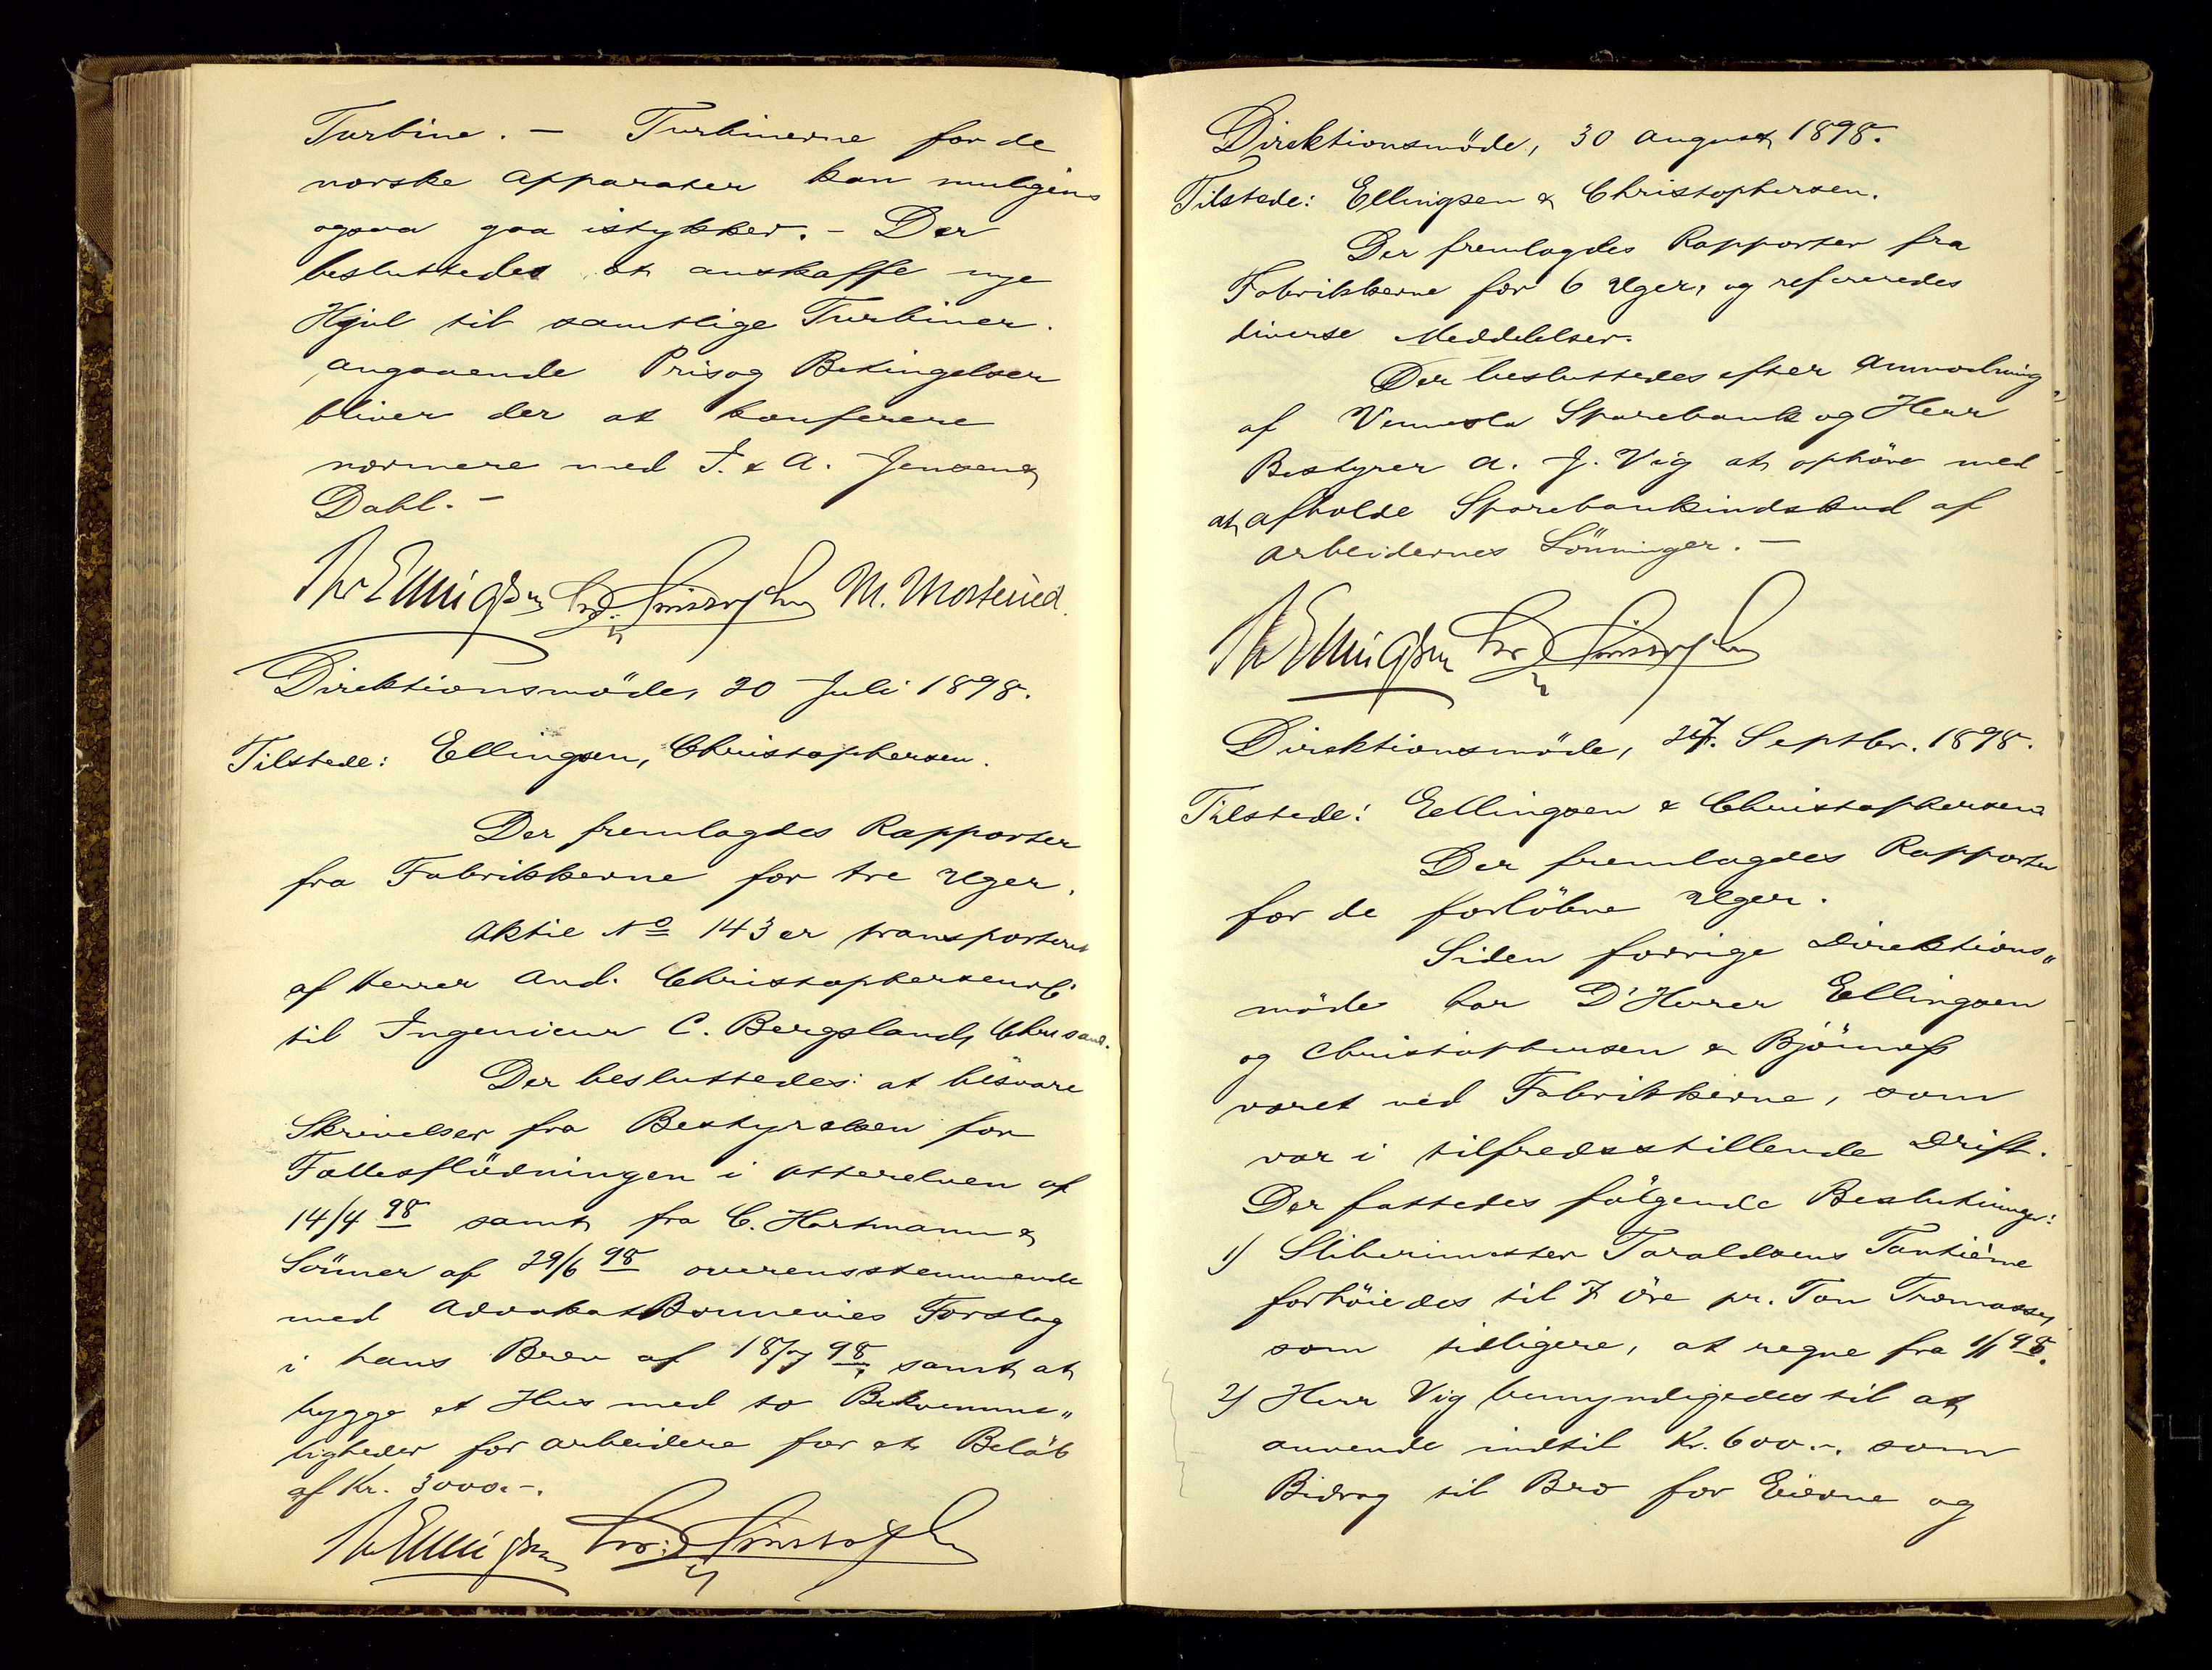 Turbine. – Turbinerne for de
norske Apparater kan muligens
ogsaa gaa istykker. – Der
besluttedes at anskaffe nye
Hjul til samtlige Turbiner.
Angaaende Pris og Betingelser
bliver der at konferere
nærmere med J. & A. Jensen &
Dahl. –
Th Ellingsen M. Mosfeued.
Direktionsmöde, 20 Juli 1898.
Tilstede: Ellingsen, Christophersen.
Der fremlagdes Rapporter
fra Fabrikkerne for tre Uger.
Aktie No 143 er transporteret
af Herrer And. Christophersen & C
til Ingenieur C. Bergsland, Chrsand.
Der besluttedes: at besvare
Skrivelser fra Bestyrelsen for
Fællesflödningen i Otterelven af
14/4 98 samt fra C. Hartmann &
Sönner af 29/6 98 overensstemmende
med Advokat Bonnevies Forslag
i hans Brev af 18/7 98, samt at
bygge et Hus med to Bekvemme„
ligheder for Arbeidere for et Belöb
af Kr. 3000.–.
Th Ellingsen
Direktionsmöde, 30 August 1898.
Tilstede: Ellingsen & Christophersen.
Der fremlagdes Rapporter fra
Fabrikkerne for 6 Uger, og refereredes
diverse Meddelelser.
Der besluttedes efter Anmodning
af Vennesla Sparebank og Herr
Bestyrer A. J. Vig at ophöre med
at afholde Sparebankindskud af
Arbeidernes Lönninger. –
Th Ellingsen
Direktionsmöde, 27. Septbr. 1898.
Tilstede: Ellingsen & Christophersen
Der fremlagdes Rapporter
for de forlöbne Uger.
Siden forrige Direktions„
möde har D'Herrer Ellingsen
og Christophersen & Björnoß
været ved Fabrikkerne, som
var i tilfredsstillende Drift.
Der fattedes fölgende Beslutninger:
1) Slibermester Taraldsens Tantième
forhöiedes til 7 Öre pr. Ton Træmasse,
som tidligere, at regne fra 1/1 98.
2) Herr Vig bemyndigedes til at
anvende indtil Kr. 600.–. som
Bidrag til Bro for Eierne og